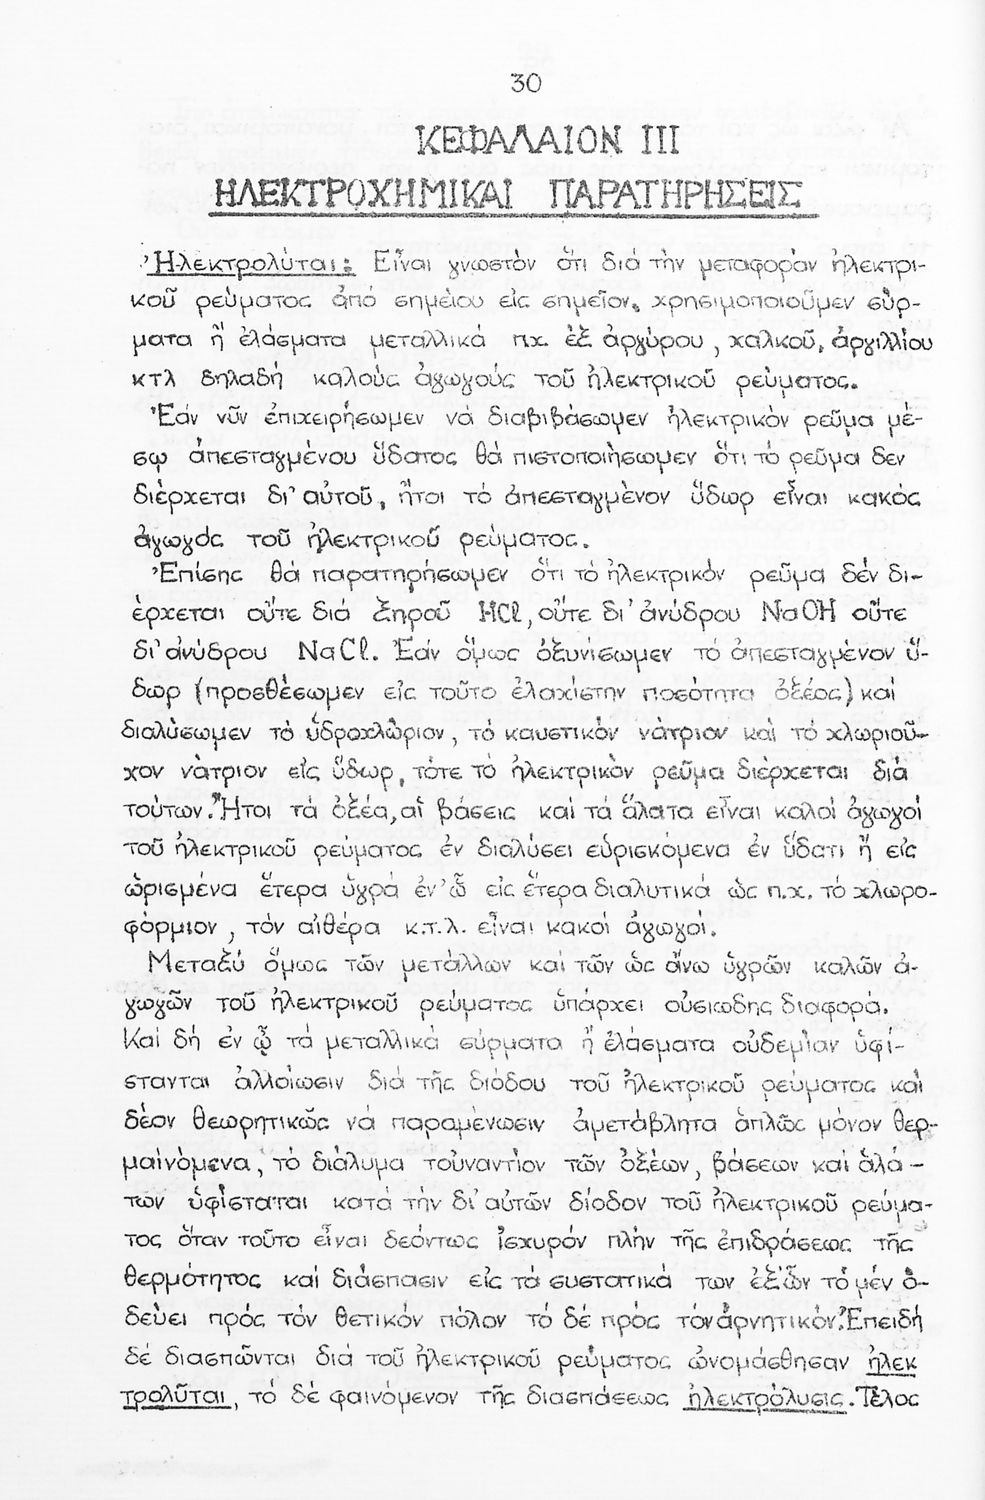 30
ΚΕΦΑΛΑΙΟΝ ΙΙΙ
ΗΛΕΚΤΡΟΧΗΜΙΚΑΙ ΠΑΡΑΤΗΡΗΣΕΙΣ
Ἠλεκτρολύται: Εἶναι γνωστόν ὅτι διά τήν μεταφοράν ἠλεκτρι-
κοῦ ρεύματος ἀπό σημείου εἰς σημεῖον, χρησιμοποιοῦμεν σύρ-
ματα ἤ ἐλάσματα μεταλλικά πχ. ἐξ ἀργύρου, χαλκοῦ, ἀργιλλίου
κτλ δηλαδή καλούς ἀγωγούς τοῦ ἠλεκτρικοῦ ρεύματος.
Ἐάν νῦν ἐπιχειρήσωμεν νά διαβιβάσωμεν ἠλεκτρικόν ρεῦμα μέ-
σῳ ἀπεσταγμένου ὕδατος θά πιστοποιήσωμεν ὅτι τό ρεῦμα δεν
διέρχεται δι' αὐτοῦ, ἤτοι τό ἀπεσταγμένον ὕδωρ εἶναι κακός
ἀγωγός τοῦ ἠλεκτρικοῦ ρεύματος.
Ἐπίσης θά παρατηρήσωμεν ὅτι τό ἠλεκτρικόν ρεῦμα δέν δι-
έρχεται οὔτε διά ξηροῦ HCl, οὔτε δι' ἀνύδρου NaOH οὔτε
δι' ἀνύδρου NaCl. Ἐάν ὅμως ὀξυνίσωμεν τό ἀπεσταγμένον ὕ-
δωρ (προσθέσωμεν εἰς τοῦτο ἐλαχίστην ποσότητα ὀξέος) καί
διαλύσωμεν τό ὑδροχλώριον, τό καυστικόν νάτριον καί τό χλωριοῦ-
χον νάτριον εἰς ὕδωρ, τότε τό ἠλεκτρικόν ρεῦμα διέρχεται διά
τούτων. Ἤτοι τά ὀξέα, αἱ βάσεις καί τά ἅλατα εἶναι καλοί ἀγωγοί
τοῦ ἠλεκτρικοῦ ρεύματος ἐν διαλύσει εὑρισκόμενα ἐν ὕδατι ἤ εἰς
ὡρισμένα ἕτερα ὑγρά ἐν' ᾧ εἰς ἕτερα διαλυτικά ὡς π.χ. τό χλωρο-
φόρμιον, τόν αἰθέρα κ.τ.λ. εἶναι κακοί ἀγωγοί.
Μεταξύ ὅμως τῶν μετάλλων καί τῶν ὡς ἄνω ὑγρῶν καλῶν ἀ-
γωγῶν τοῦ ἠλεκτρικοῦ ρεύματος ὑπάρχει οὐσιώδης διαφορά.
Καί δή ἐν ᾧ τά μεταλλικά σύρματα ἤ ἐλάσματα οὐδεμίαν ὑφί-
στανται ἀλλοίωσιν διά τῆς διόδου τοῦ ἠλεκτρικοῦ ρεύματος καί
δέον θεωρητικῶς νά παραμένωσιν ἀμετάβλητα ἁπλῶς μόνον θερ-
μαινόμενα, τό διάλυμα τοὐναντίον τῶν ὀξέων, βάσεων καί ἁλά-
των ὑφίσταται κατά τήν δι' αὐτῶν δίοδον τοῦ ἠλεκτρικοῦ ρεύμα-
τος ὅταν τοῦτο εἶναι δεόντως ἰσχυρόν πλήν τῆς ἐπιδράσεως τῆς
θερμότητος καί διάσπασιν εἰς τά συστατικά των ἐξ ὧν τό μέν ὁ-
δεύει πρός τόν θετικόν πόλον τό δέ πρός τόν ἀρνητικόν. Ἐπειδή
δέ διασπῶνται διά τοῦ ἠλεκτρικοῦ ρεύματος ὠνομάσθησαν ἠλεκ
τρολῦται, τό δέ φαινόμενον τῆς διασπάσεως ἠλεκτρόλυσις. Τέλος